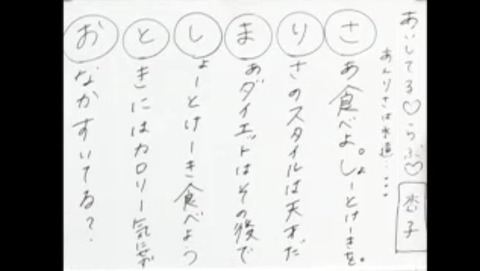 あいしてる♡らぶ♡ 杏子
あんりさは永遠……
さあ食べよ。しょーとけーきを。
りさのスタイルは天才だ
まあダイエットはその後で
しょーとけーき食べよう
ときにはカロリー気にせず
おなかすいてる？